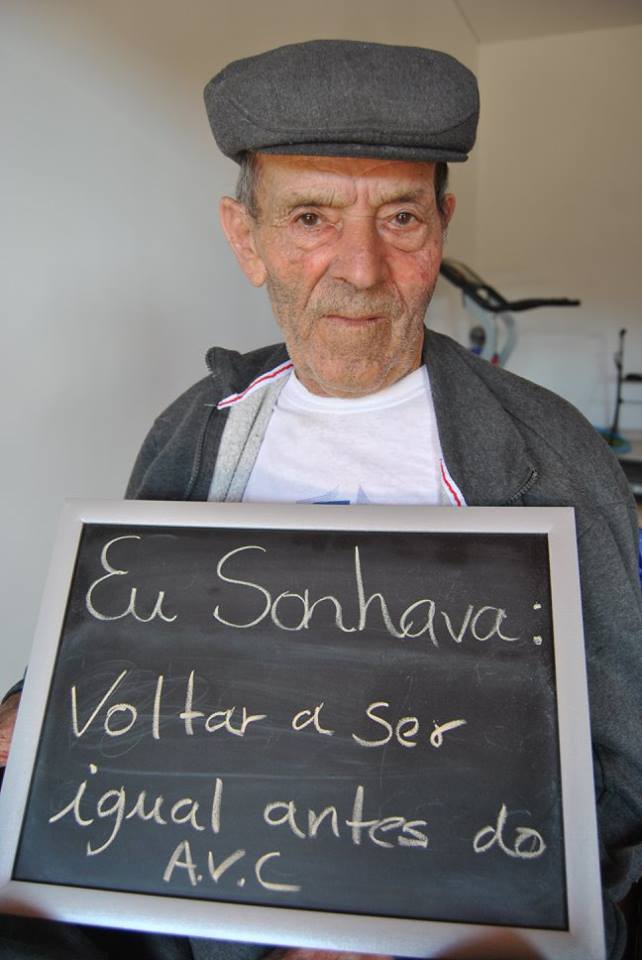 Eu Sonhava:
Voltar a ser
igual antes do
A.V.C